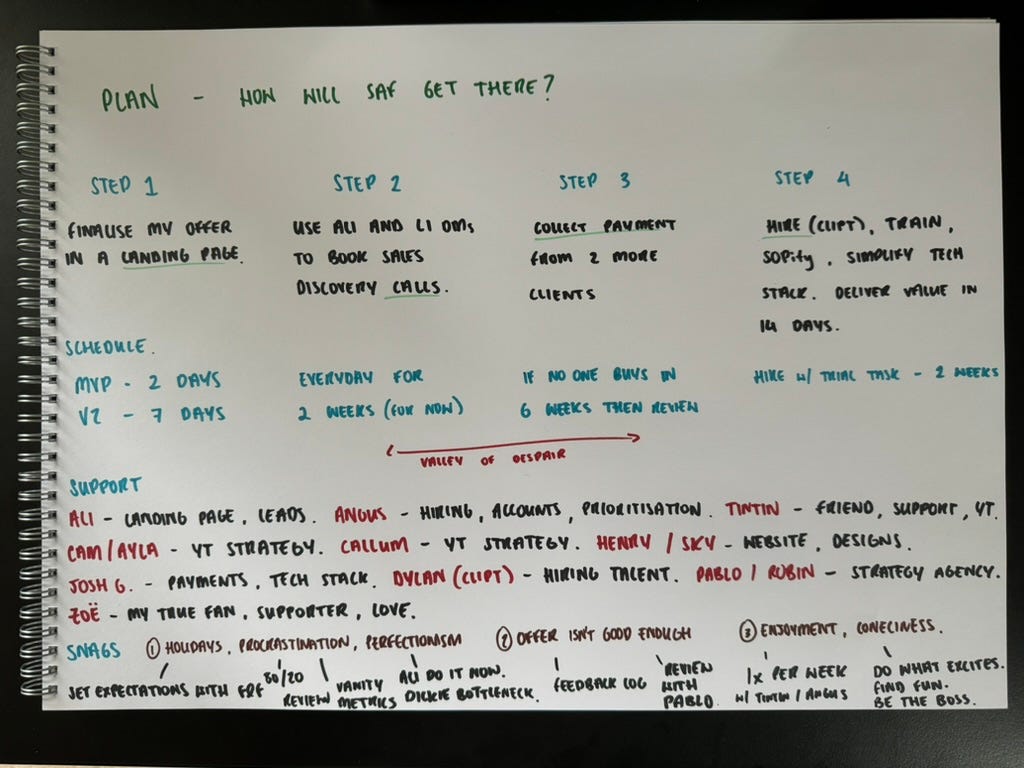 PLAN - HOW WILL SAF GET THERE?
STEP 1
FINALISE MY OFFER
IN A LANDING PAGE.
STEP 2
USE ALI AND LI DMs
TO BOOK SALES
DISCOVERY CALLS.
STEP 3
COLLECT PAYMENT
FROM 2 MORE
CLIENTS
STEP 4
HIRE (CLIPT), TRAIN,
SOPify, SIMPLIFY TECH
STACK. DELIVER VALUE IN
14 DAYS.
SCHEDULE.
MVP - 2 DAYS
V2 - 7 DAYS
EVERYDAY FOR
2 WEEKS (FOR NOW)
IF NO ONE BUYS IN
6 WEEKS THEN REVIEW
HIRE w/ TRIAL TASK - 2 WEEKS
VALLEY OF DESPAIR
SUPPORT
ALI - LANDING PAGE, LEADS. ANGUS - HIRING, ACCOUNTS, PRIORITISATION. TINTIN - FRIEND, SUPPORT, YT.
CAM/AYLA - YT STRATEGY. CALLUM - YT STRATEGY. HENRY / SKY - WEBSITE, DESIGNS.
JOSH G. - PAYMENTS, TECH STACK. DYLAN (CLIPT) - HIRING TALENT. PABLO / ROBIN - STRATEGY AGENCY.
ZOË - MY TRUE FAN, SUPPORTER, LOVE.
SNAGS ① HOLIDAYS, PROCRASTINATION, PERFECTIONISM ② OFFER ISN'T GOOD ENOUGH ③ ENJOYMENT, LONELINESS.
SET EXPECTATIONS WITH
80/20
REVIEW
VANITY
METRICS
ALI DO IT NOW.
DICKIE BOTTLENECK.
FEEDBACK LOG
REVIEW
WITH
PABLO
1x PER WEEK
w/ TINTIN / ANGUS
DO WHAT EXCITES.
FIND FUN.
BE THE BOSS.